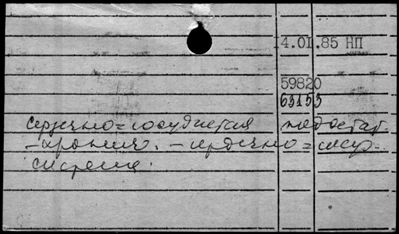 14.01.85 НП
59820
65155
сердечно=сосудистая недостат.
-хронич. - сердечно=сосуд.
система.